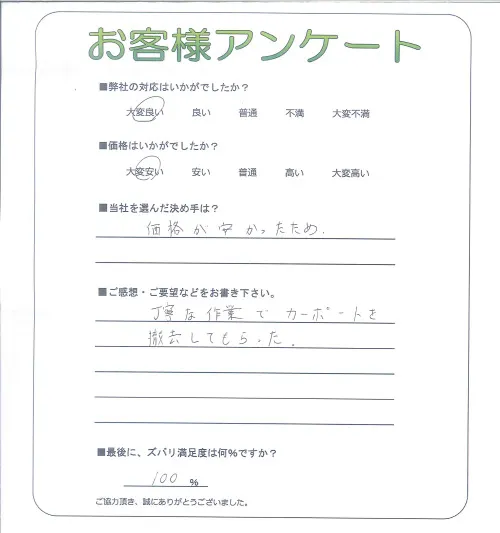 お客様アンケート
■弊社の対応はいかがでしたか？
大変良い 良い 普通 不満 大変不満
■価格はいかがでしたか？
大変安い 安い 普通 高い 大変高い
■当社を選んだ決め手は？
価格が安かったため.
■ご感想・ご要望などをお書き下さい。
丁寧な作業でカーポートを
撤去してもらった.
■最後に、ズバリ満足度は何％ですか？
100 %
ご協力頂き、誠にありがとうございました。